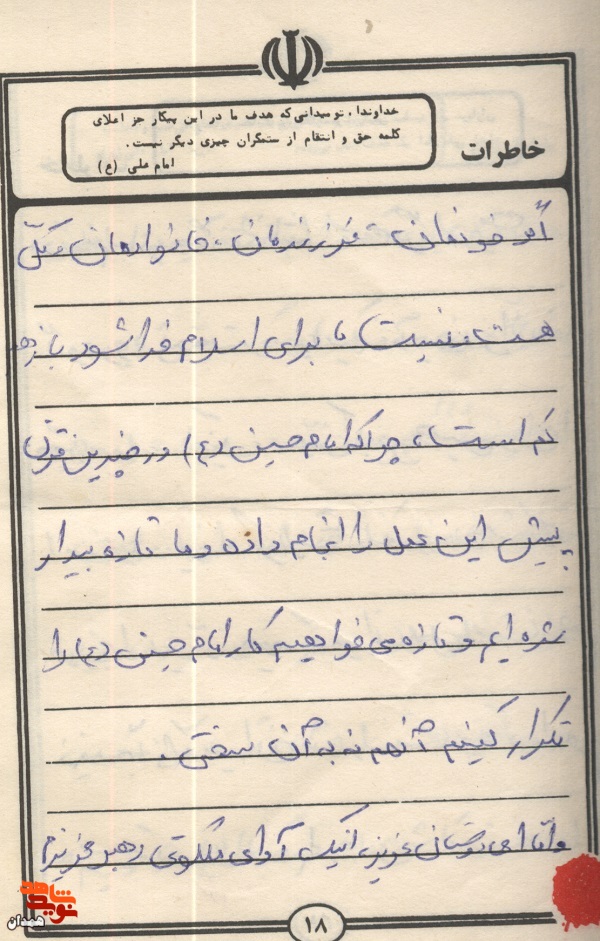 خداوندا، تو میدانی که هدف ما در این پیکار جز اعلای
کلمه حق و انتقام از ستمگران چیزی دیگر نیست.
امام علی (ع)
خاطرات
اگر خونمان، فرزندمان، خانواده‌مان و کلّی
هست و نیست ما برای اسلام فدا شود باز هم
کم است، چرا که امام حسین (ع) در چندین قرن
پیش این عمل را انجام داده و ما تازه بیدار
شده ایم و تازه می خواهیم کار امام حسین (ع) را
تکرار کنیم آنهم نه به آن سختی.
و امّا ای دوستان عزیز، اینک آوای ملکوتی رهبر عزیزم
۱۸
شاهد
نوید
همدان